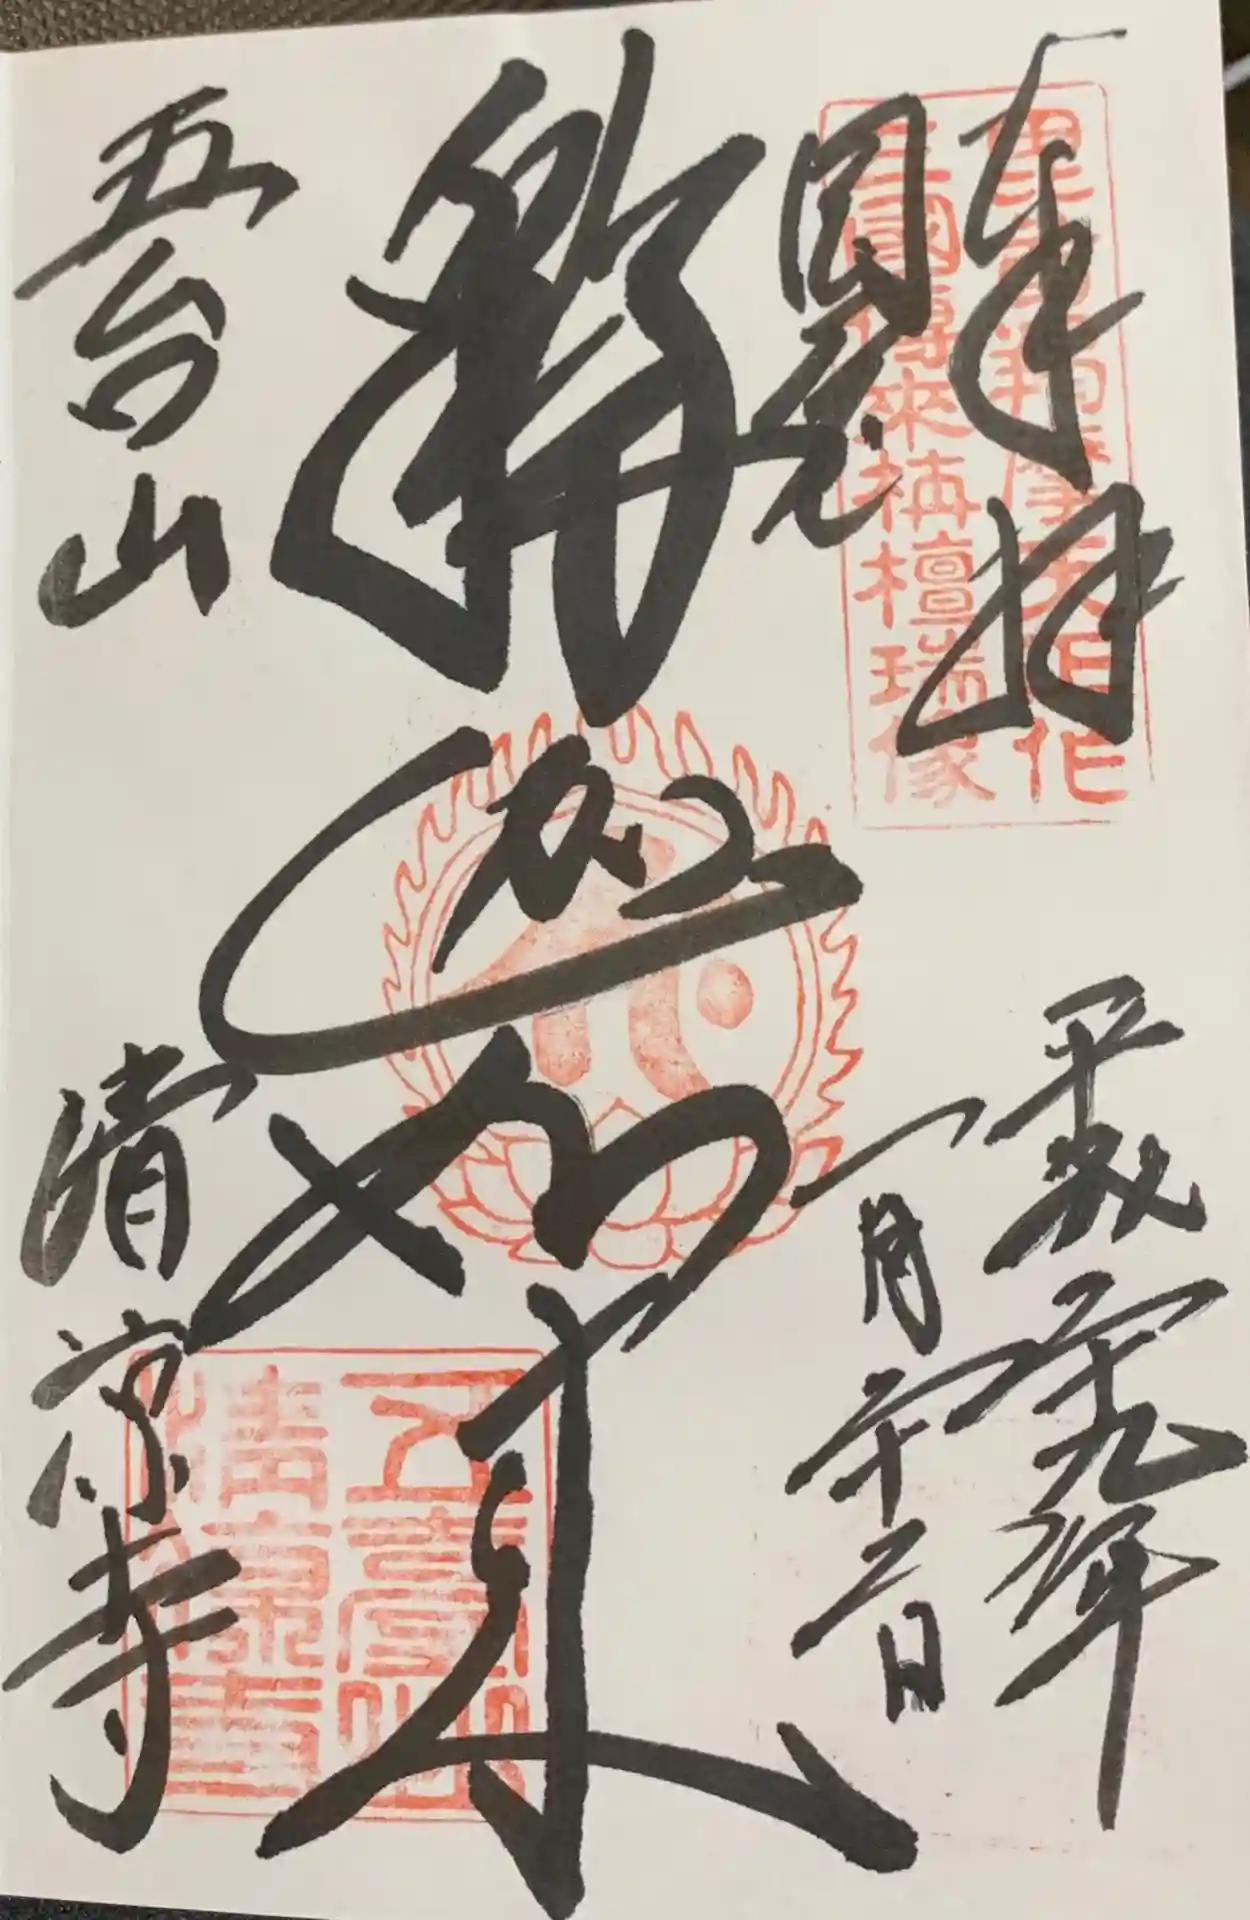 奉拝
国宝
毘首羯磨天作
三國傳來栴檀瑞像
平成二十九年
一月二十二日
釈迦如来
五台山
清凉寺
五臺山
清凉寺